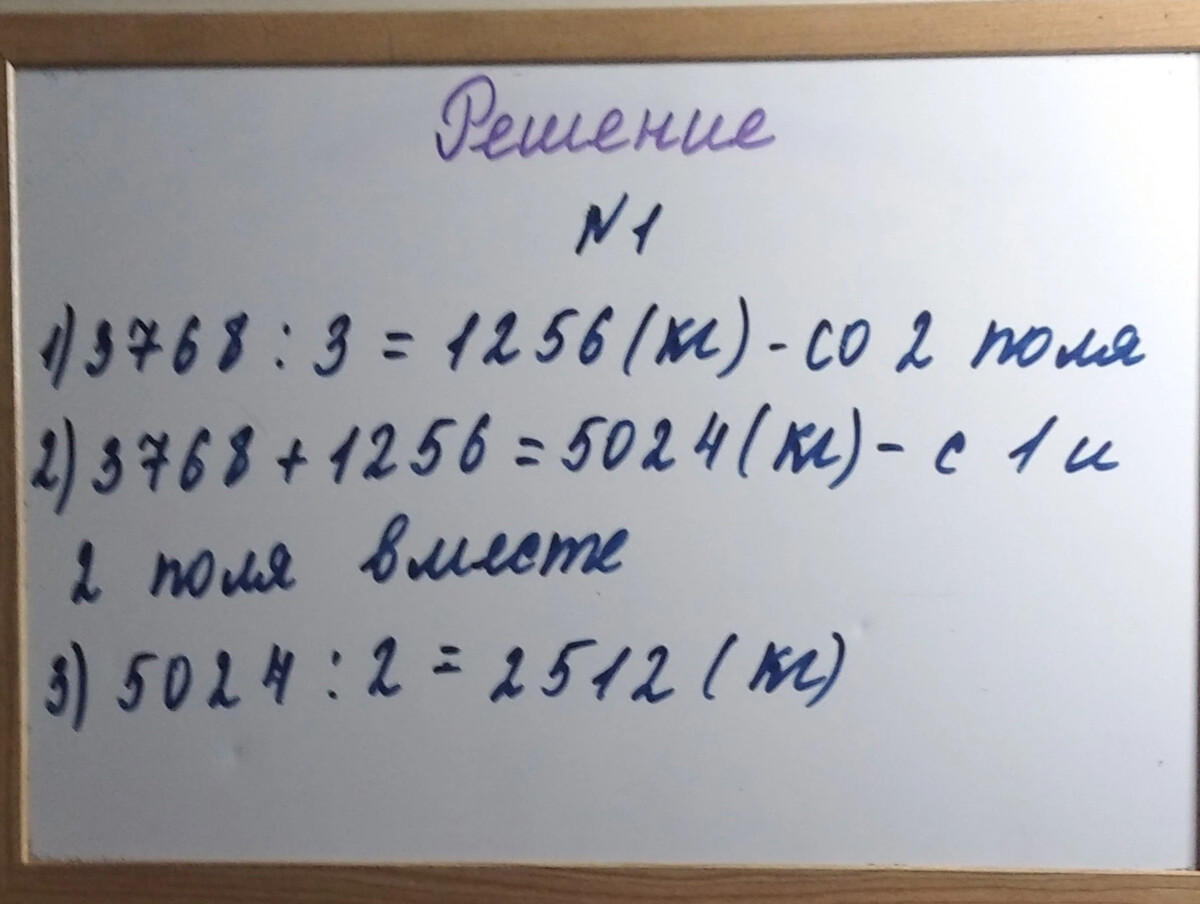 Решение
N1
1) 3768 : 3 = 1256 (кг) - со 2 поля
2) 3768 + 1256 = 5024 (кг) - с 1 и
2 поля вместе
3) 5024 : 2 = 2512 (кг)